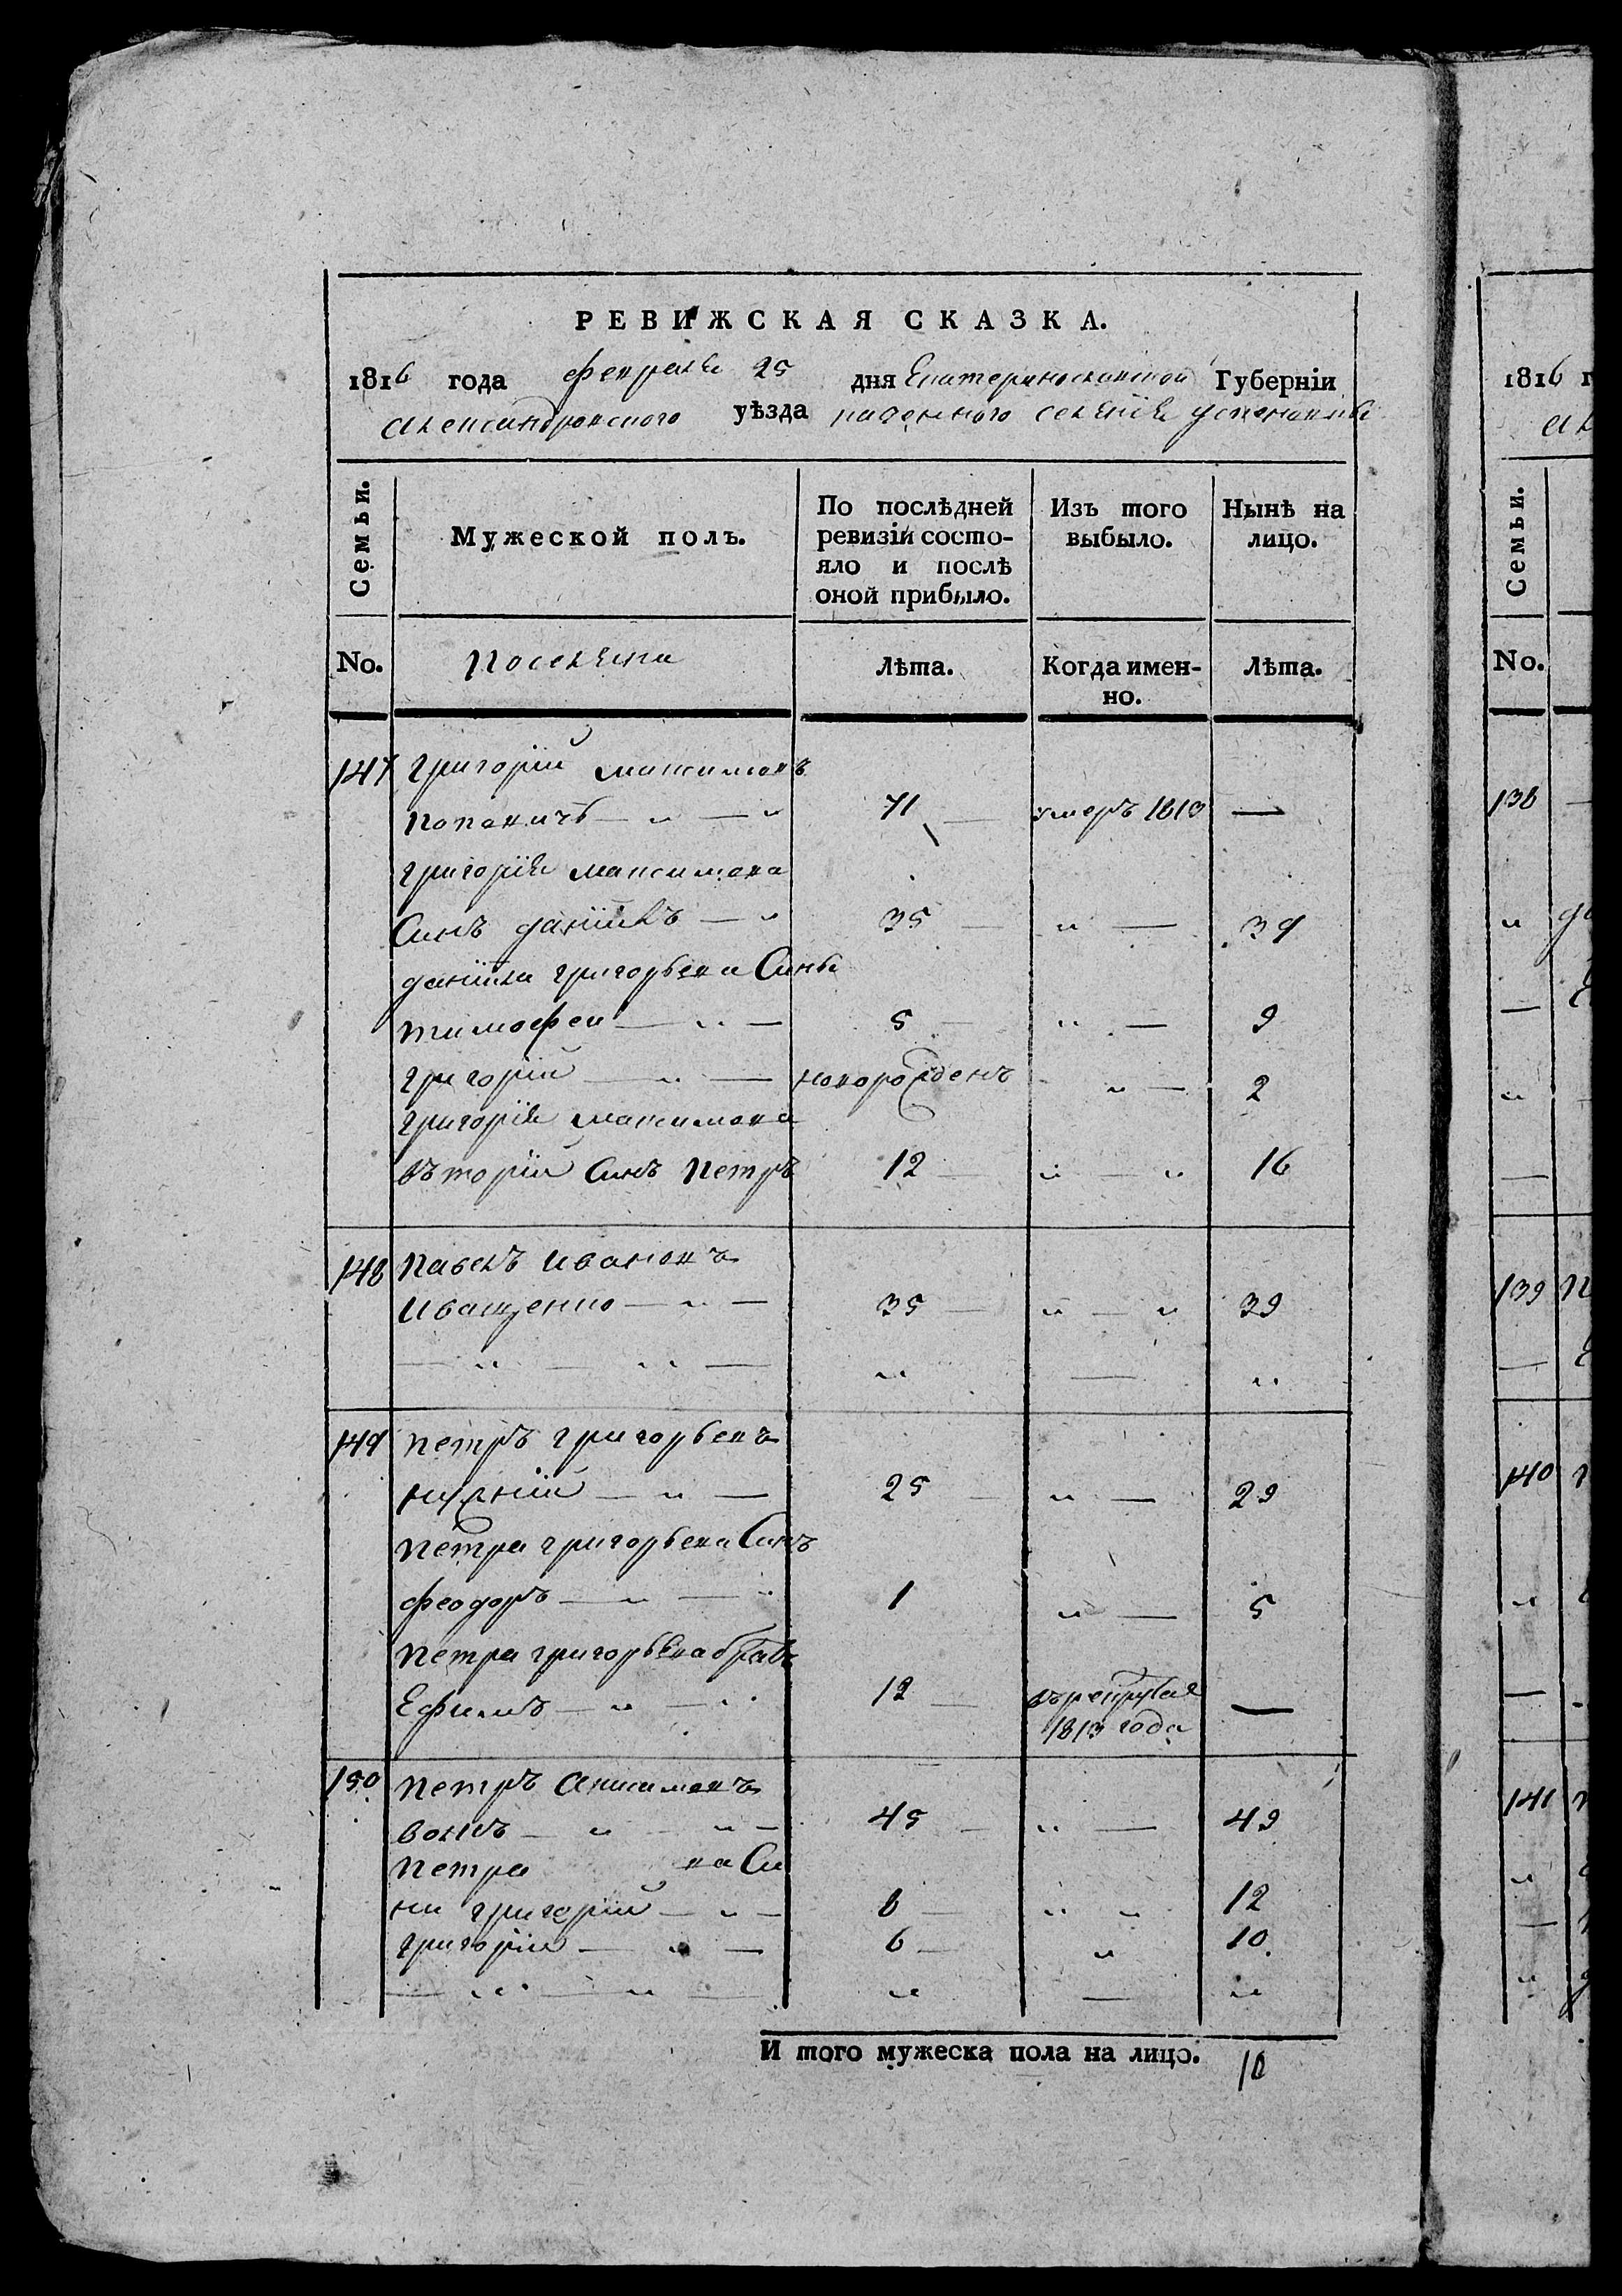 РЕВИЖСКАЯ СКАЗКА.
1816 года февраля 25 дня Екатеринославской Губерніи
Александровского уѣзда казенного селенія Успеновки
Семьи.
Мужеской полъ.
По послѣдней ревизіи состо-
яло и послѣ
оной прибыло.
Изъ того
выбыло.
Нынѣ на
лицо.
No.
Поселяни
Лѣта.
Когда имен-
но.
Лѣта.
147 Григорій Максимовъ
Попович 71 умеръ 1813 —
Григорія Максимова
Синъ Даніилъ 35 " — 39
Даніила Григорьева Сины
Тимофеи 5 " — 9
Григорій новорожденъ " — 2
Григорія Максимова
Въторій Синъ Петръ 12 " — " 16
148 Павелъ Ивановъ
Иващенко 35 " — " 39
149 Петръ Григорьевъ
25 " — 29
Петра Григорьева Синъ
Феодоръ 1 " — 5
Петра Григорьева братъ
Ефимъ 12 въ рекрутахъ —
1813 года
150 Петръ Анисимовъ
Вовкъ 45 " — 49
Петра ва Си
ни Григорій 8 " " 12
Григорій 6 " 10
И того мужеска пола на лицо. 10
1816 г
Ал
Семьи.
No.
138
139 П
140
141